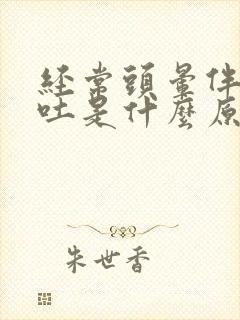 經常頭暈伴
吐是什麼原
朱世香